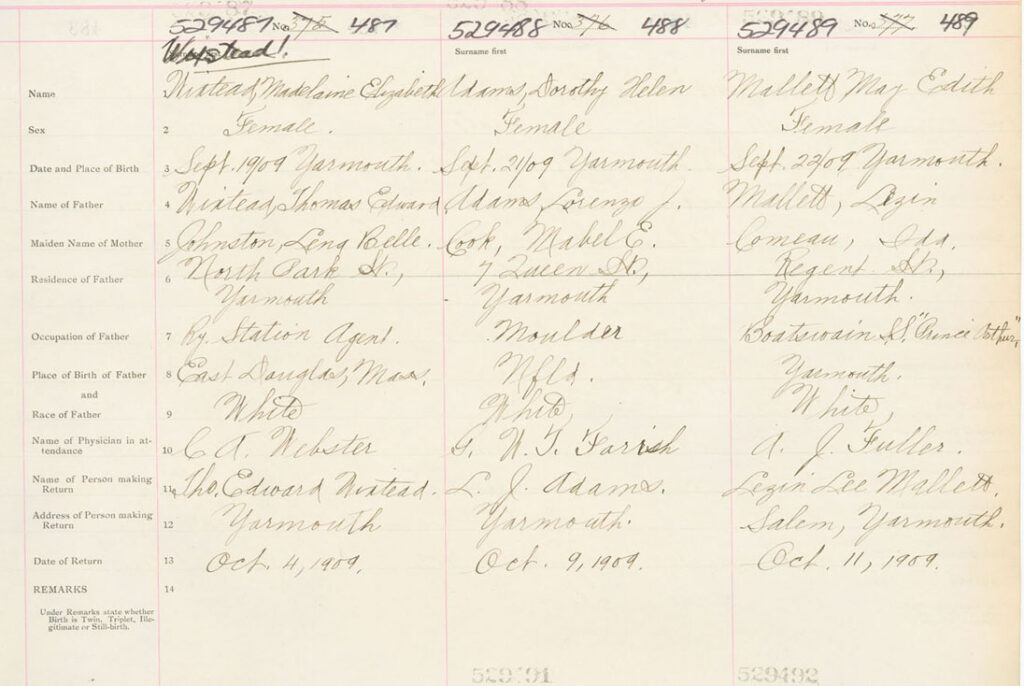 529487 No. 375 487
529488 No. 376 488
529489 No. 377 489
Surname first
Surname first
Name
Wixtead, Madelaine Elizabeth
Adams, Dorothy Helen
Mallett May Edith
Sex
2
Female.
Female
Female
Date and Place of Birth
3
Sept. 19/09 Yarmouth.
Sept. 21/09 Yarmouth.
Sept. 22/09 Yarmouth.
Name of Father
4
Wixtead, Thomas Edward
Adams, Lorenzo J.
Mallett, Lezin
Maiden Name of Mother
5
Johnston, Lena Belle.
Cook, Mabel E.
Comeau, Ida.
Residence of Father
6
North Park St.,
Yarmouth
7 Queen St.,
Yarmouth
Regent St.,
Yarmouth.
Occupation of Father
7
Ry. Station Agent.
Moulder
Boatswain S.S. "Prince Arthur,"
Place of Birth of Father
and
8
East Douglas, Mass.
Nfld.
Yarmouth.
Race of Father
9
White
White,
White,
Name of Physician in at-
tendance
10
C. A. Webster
G. W. T. Farrish
A. J. Fuller.
Name of Person making
Return
11
Tho. Edward Wixtead.
L. J. Adams.
Lezin Lee Mallett.
Address of Person making
Return
12
Yarmouth
Yarmouth.
Salem, Yarmouth.
Date of Return
13
Oct. 4, 1909.
Oct. 9, 1909.
Oct. 11, 1909.
REMARKS
14
Under Remarks state whether
Birth is Twin, Triplet, Ille-
gitimate or Still-birth.
529491
529492